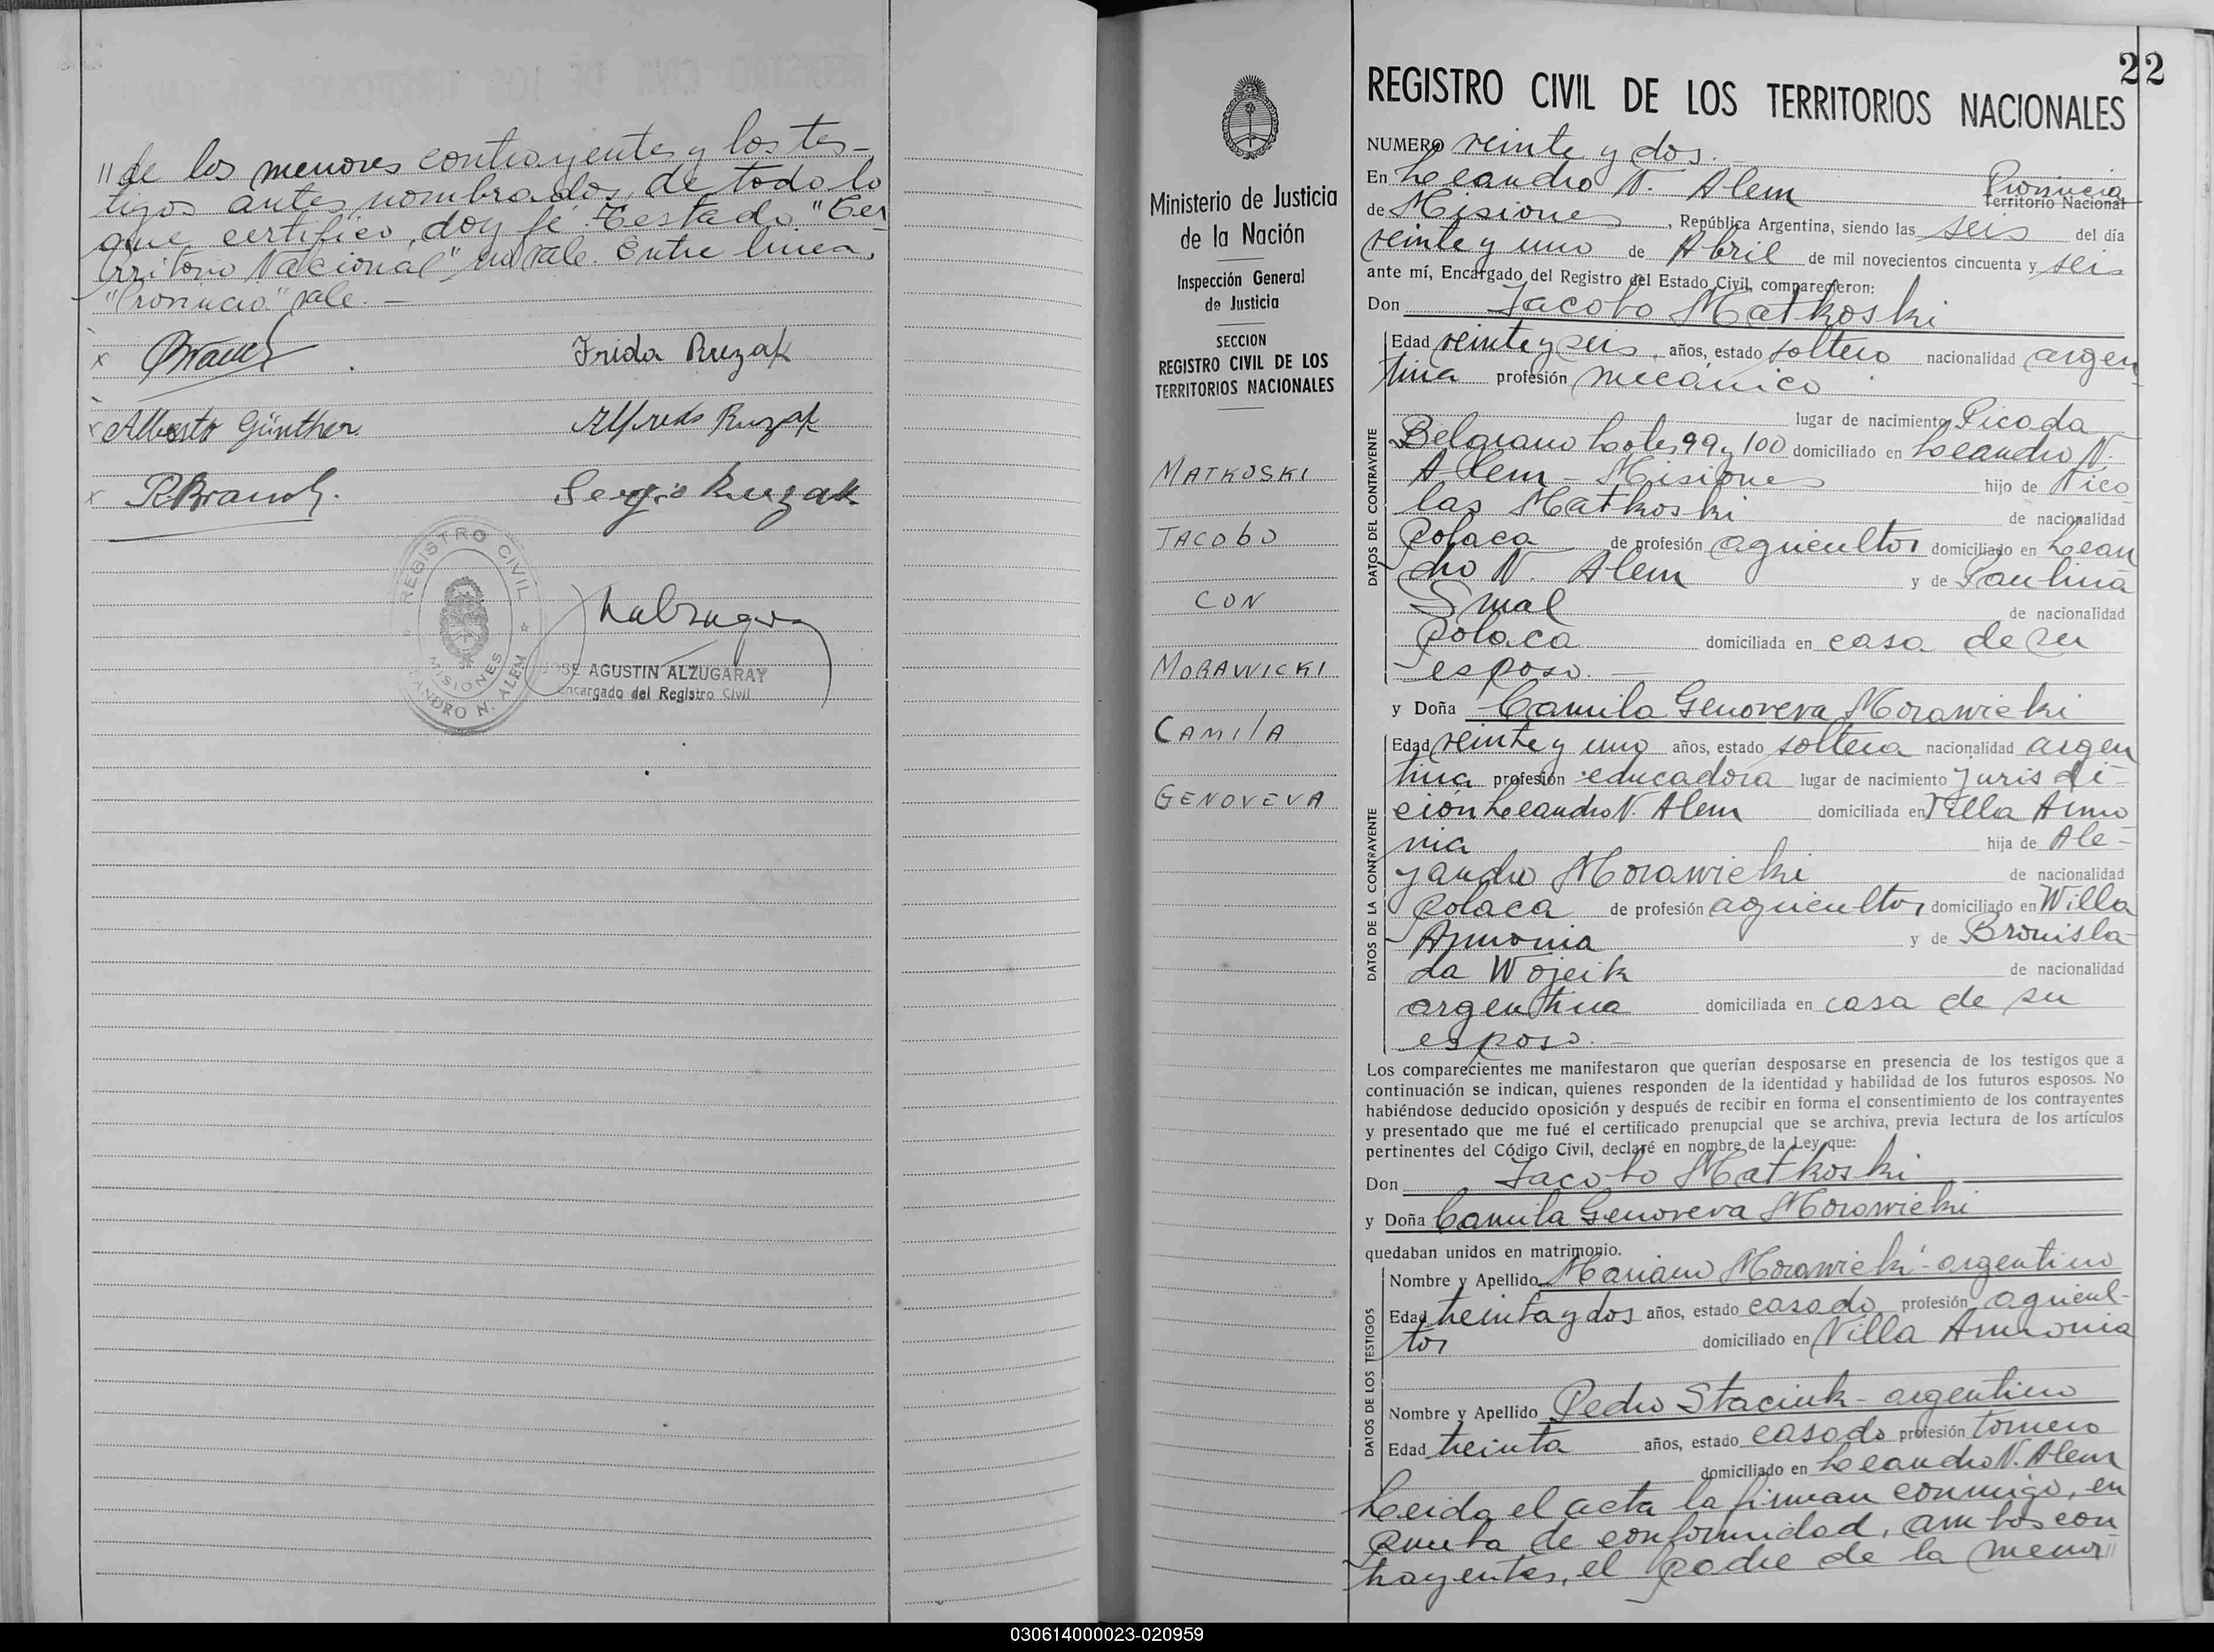 "de los menores contrayentes y los tes-
tigos antes nombrados, de todo lo
que certifico, doy fé. Testado: "Ter-
rritorio Nacional" no vale. Entre linea,
"Provincia" vale. —
x
Frida Ruzak
x Alberto Günther
Alfredo Ruzak
x R. Brandt.
Sergio Ruzak
REGISTRO CIVIL
MISIONES
LEANDRO N. ALEM
JOSE AGUSTIN ALZUGARAY
Encargado del Registro Civil
Ministerio de Justicia
de la Nación
Inspección General
de Justicia
SECCION
REGISTRO CIVIL DE LOS
TERRITORIOS NACIONALES
MATKOSKI
JACOBO
CON
MORAWICKI
CAMILA
GENOVEVA
22
REGISTRO CIVIL DE LOS TERRITORIOS NACIONALES
NUMERO veinte y dos. —
En Leandro N. Alem Provincia Territorio Nacional
de Misiones, República Argentina, siendo las seis del día
veinte y uno de Abril de mil novecientos cincuenta y seis
ante mí, Encargado del Registro del Estado Civil, comparecieron:
Don Jacobo Matkoski
DATOS DEL CONTRAYENTE
Edad veinte y seis, años, estado soltero nacionalidad argen
tina profesión mecánico
lugar de nacimiento Picada
Belgrano Lotes 99 y 100 domiciliado en Leandro N.
Alem - Misiones hijo de Nico
las Matkoski de nacionalidad
polaca de profesión agricultor domiciliado en Lean
dro N. Alem y de Paulina
Smal de nacionalidad
polaca domiciliada en casa de su
esposo. —
y Doña Camila Genoveva Morawicki
DATOS DE LA CONTRAYENTE
Edad veinte y uno años, estado soltera nacionalidad argen
tina profesión educadora lugar de nacimiento jurisdi-
ción Leandro N. Alem domiciliada en Villa Armo
nia hija de Ale-
jandro Morawicki de nacionalidad
polaca de profesión agricultor domiciliado en Willa
Armonia y de Bronisla-
da Wojcik de nacionalidad
argentina domiciliada en casa de su
esposo. —
Los comparecientes me manifestaron que querían desposarse en presencia de los testigos que a
continuación se indican, quienes responden de la identidad y habilidad de los futuros esposos. No
habiéndose deducido oposición y después de recibir en forma el consentimiento de los contrayentes
y presentado que me fué el certificado prenupcial que se archiva, previa lectura de los artículos
pertinentes del Código Civil, declaré en nombre de la Ley que:
Don Jacobo Matkoski
y Doña Camila Genoveva Morawicki
quedaban unidos en matrimonio.
DATOS DE LOS TESTIGOS
Nombre y Apellido Mariano Morawicki - argentino
Edad treinta y dos años, estado casado profesión agricul-
tor domiciliado en Villa Armonia
Nombre y Apellido Pedro Staciuk - argentino
Edad treinta años, estado casado profesión tornero
domiciliado en Leandro N. Alem
Leida el acta la firman conmigo, en
prueba de conformidad, ambos con
trayentes, el padre de la menor "
030614000023-020959